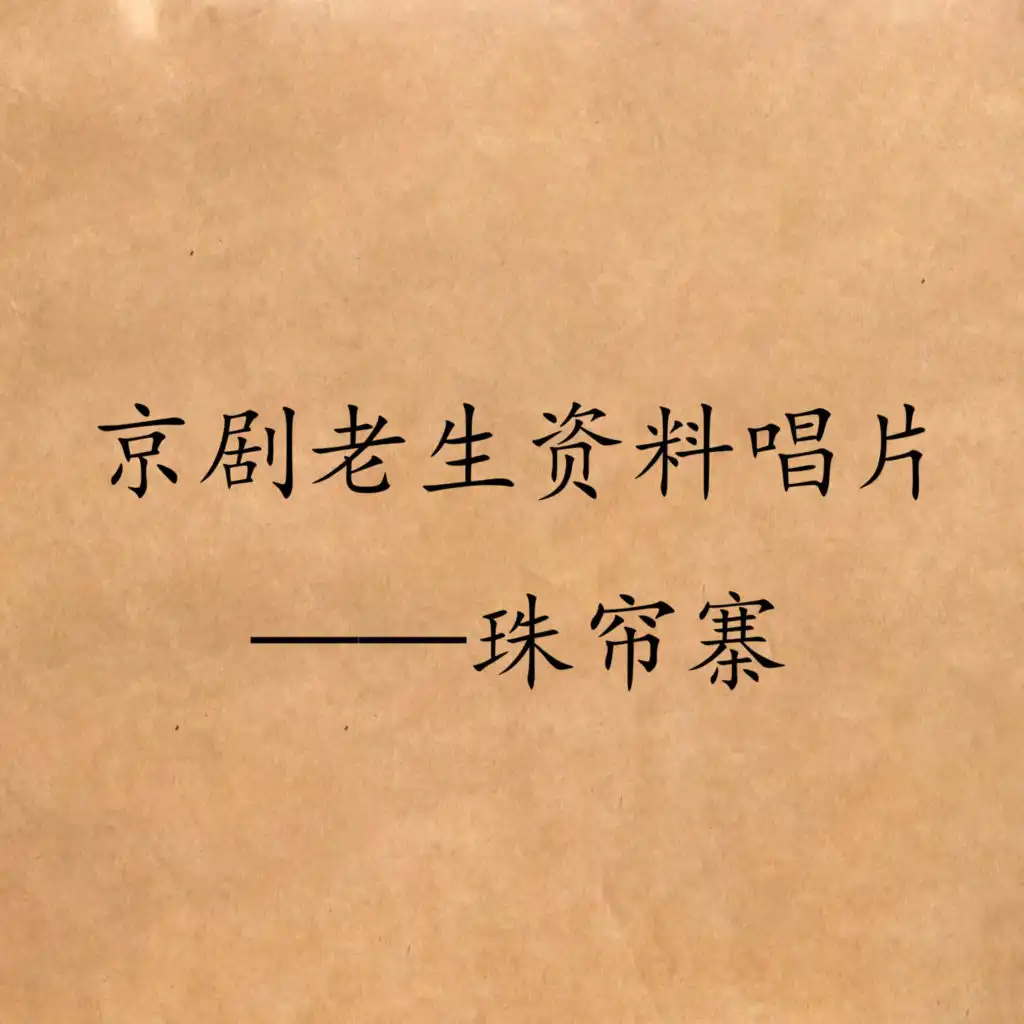 京剧老生资料唱片
——珠帘寨